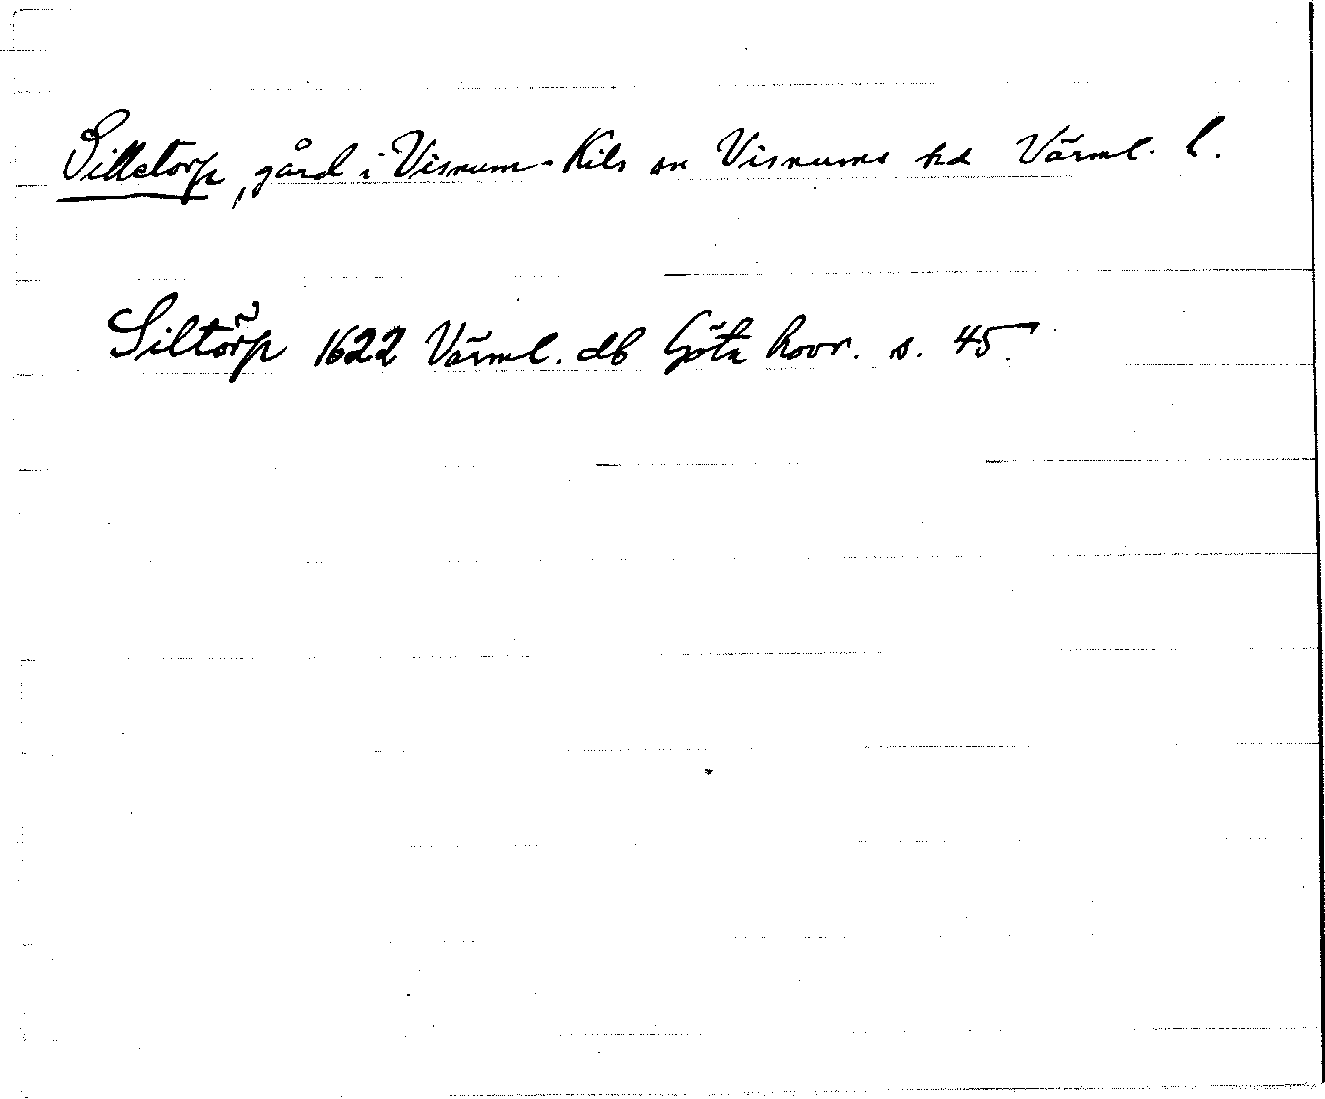 Silletorp, gård i Visnum-Kils sn Visnums hd Värml. l.
Siltorp 1622 Värml. db Göta hovr. s. 45.